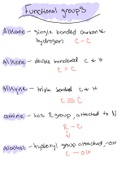 Functional groups
Alkane - single bonded carbon &
hydrogens C - C
Alkene - double bonded C & H
C = C
Alkyne - triple bonded C & H
C ≡ C
amine - has R group, attached to N
R - C
alcohol - hydroxyl group attached, -OH
C - OH